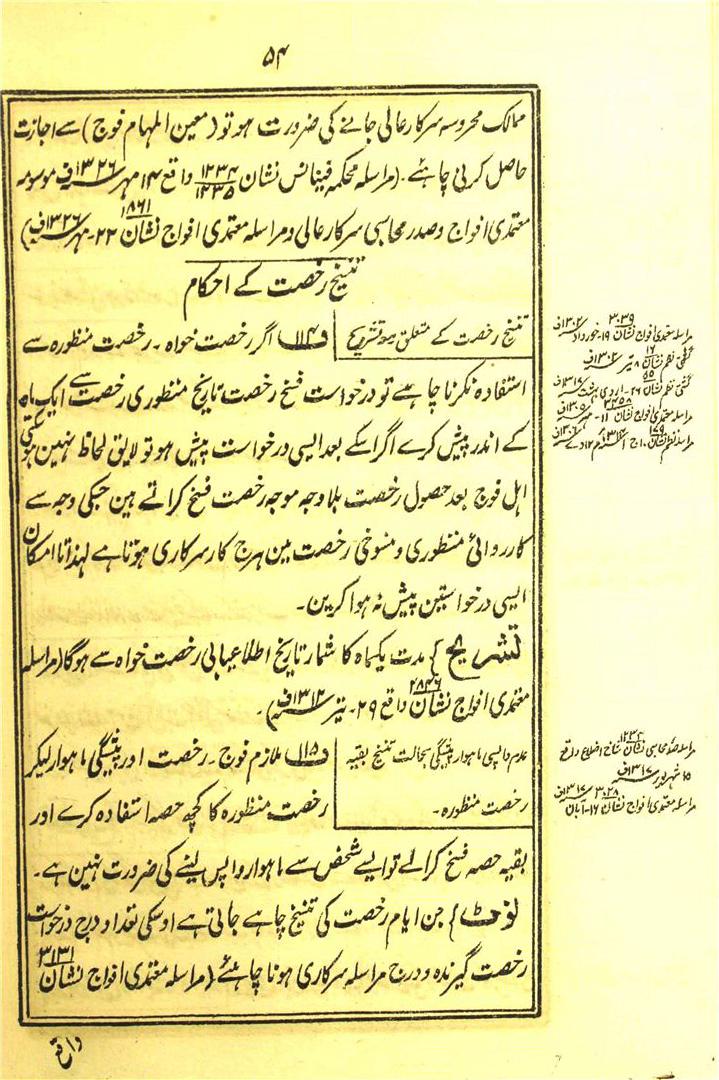 ۵۴
ممالک محروسہ سرکار عالی جانے کی ضرورت ہو تو (معین المہام فوج) سے اجازت
حاصل کرنی چاہئے۔ (مراسلہ محکمہ فینانس نشان ۱۲۳۴/۱۲۳۵ واقع ۱۴ مہر ۱۳۲۶ف موسومہ
معتمدی افواج و صدر محاسبی سرکار عالی و مراسلہ معتمدی افواج نشان ۱۸۶۱ ۲۲۔ مہر ۱۳۲۶ف)
تنسیخ رخصت کے احکام
تنسیخ رخصت کے متعلق مع تشریح
دفعہ ۱۱۴ اگر رخصت خواہ۔ رخصت منظورہ سے
استفادہ نکرنا چاہے تو درخواست فسخ رخصت تاریخ منظوری رخصت سے ایک ماہ
کے اندر پیش کرے اگر اسکے بعد ایسی درخواست پیش ہو تو لایق لحاظ نہین ہوسکتی
اہل فوج بعد حصول رخصت بلا وجہ موجہ رخصت فسخ کراتے ہین جسکی وجہ سے
کارروائی منظوری و منسوخی رخصت مین ہرج کار سرکاری ہوتا ہے لہذا تا امکان
ایسی درخواستین پیش نہ ہوا کرین۔
تشریح } مدت یکماہ کا شمار تاریخ اطلاعیابی رخصت خواہ سے ہوگا (مراسلہ
معتمدی افواج نشان ۲۸۳۶ واقع ۲۹۔ تیر ۱۳۱۲ف)۔
عدم واپسی ماہوار پیشگی بحالت تنسیخ بقیہ
رخصت منظورہ۔
دفعہ ۱۱۵ ملازم فوج۔ رخصت اور پیشگی ماہوار لیکر
رخصت منظورہ کا کچھ حصہ استفادہ کرے اور
بقیہ حصہ فسخ کرالے تو ایسے شخص سے ماہوار واپس لینے کی ضرورت نہین ہے۔
نوٹ } جن ایام رخصت کی تنسیخ چاہے جاتی ہے اوسکی تعداد درج درخواست
رخصت گیرندہ و درج مراسلہ سرکاری ہونا چاہئے (مراسلہ معتمدی افواج نشان ۳۱۳۱
واقع
مراسلہ معتمدی افواج نشان ۳۰۳۹ ۱۹۔ خورداد ۱۳۰۲ف
گشتی نظم نشان ۱۶ ۸ تیر ۱۳۰۲ف
گشتی نظم نشان ۲۶۔ اردی بہشت
مراسلہ معتمدی افواج نشان ۳۳۵۸ ۱۱۔ مہر ۱۳۰۵ف
مراسلہ نظم نشان
مراسلہ صدر محاسبی نشان ۱۲۳۴ شاخ اضلاع واقع
۱۵ شہریور ۱۳۱۷ف
مراسلہ معتمدی افواج نشان ۳۰۲۸ ۱۶۔ آبان ۱۳۱۷ف